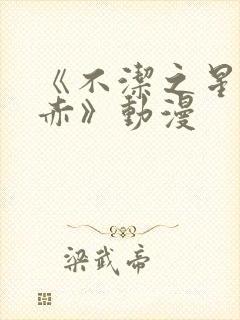 《不潔之星
赤》動漫
梁武帝